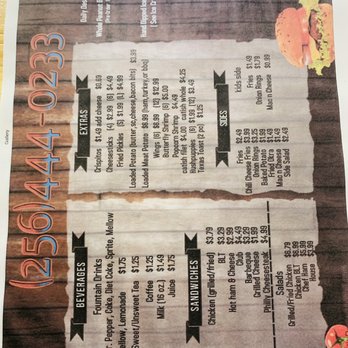 Gallery
(256)444-0233
BEVERAGES
Fountain Drinks
Pepper, Coke, Diet Coke, Sprite, Mellow
Yellow, Lemonade $1.75
Sweet/Unsweet Tea $1.25
Coffee $1.25
Milk (16 oz.) $1.49
Juice $1.75
SANDWICHES
Chicken (grilled/fried) $3.79
BLT $3.29
Hot ham & Cheese $2.99
Club $4.49
Barbeque $3.29
Grilled Cheese $1.99
Philly Cheesesteak $4.99
Salads
Grilled/Fried Chicken $6.79
Chicken BLT $6.99
Chef Ham $5.99
House $3.99
EXTRAS
Crispitos $1.49 add cheese $0.69
Cheesesticks (4) $2.98 (6) $4.49
Fried Pickles (S) $1.99 (L) $4.99
Loaded Potato (butter,sc,cheese,bacon bits) $3.99
Loaded Meat Potato $6.99 (ham,turkey,or bbq)
Wings (6) $6.99 (12) $12.98
Butterfly Shrimp (6) $5.00
Popcorn Shrimp $4.49
catfish filet $4.00 catfish Whole $4.25
Hushpuppies (6) $1.98 (12) $3.49
Texas Toast (2 pc) $1.25
SIDES
Fries $2.49
Chili Cheese Fries $3.49
Onion Rings $2.99
Baked Potato $1.99
Fried Okra $1.99
Mac n Cheese $1.49
Side Salad $2.49
kids side
Fries $1.49
Onion Rings $1.79
Mac n Cheese $0.99